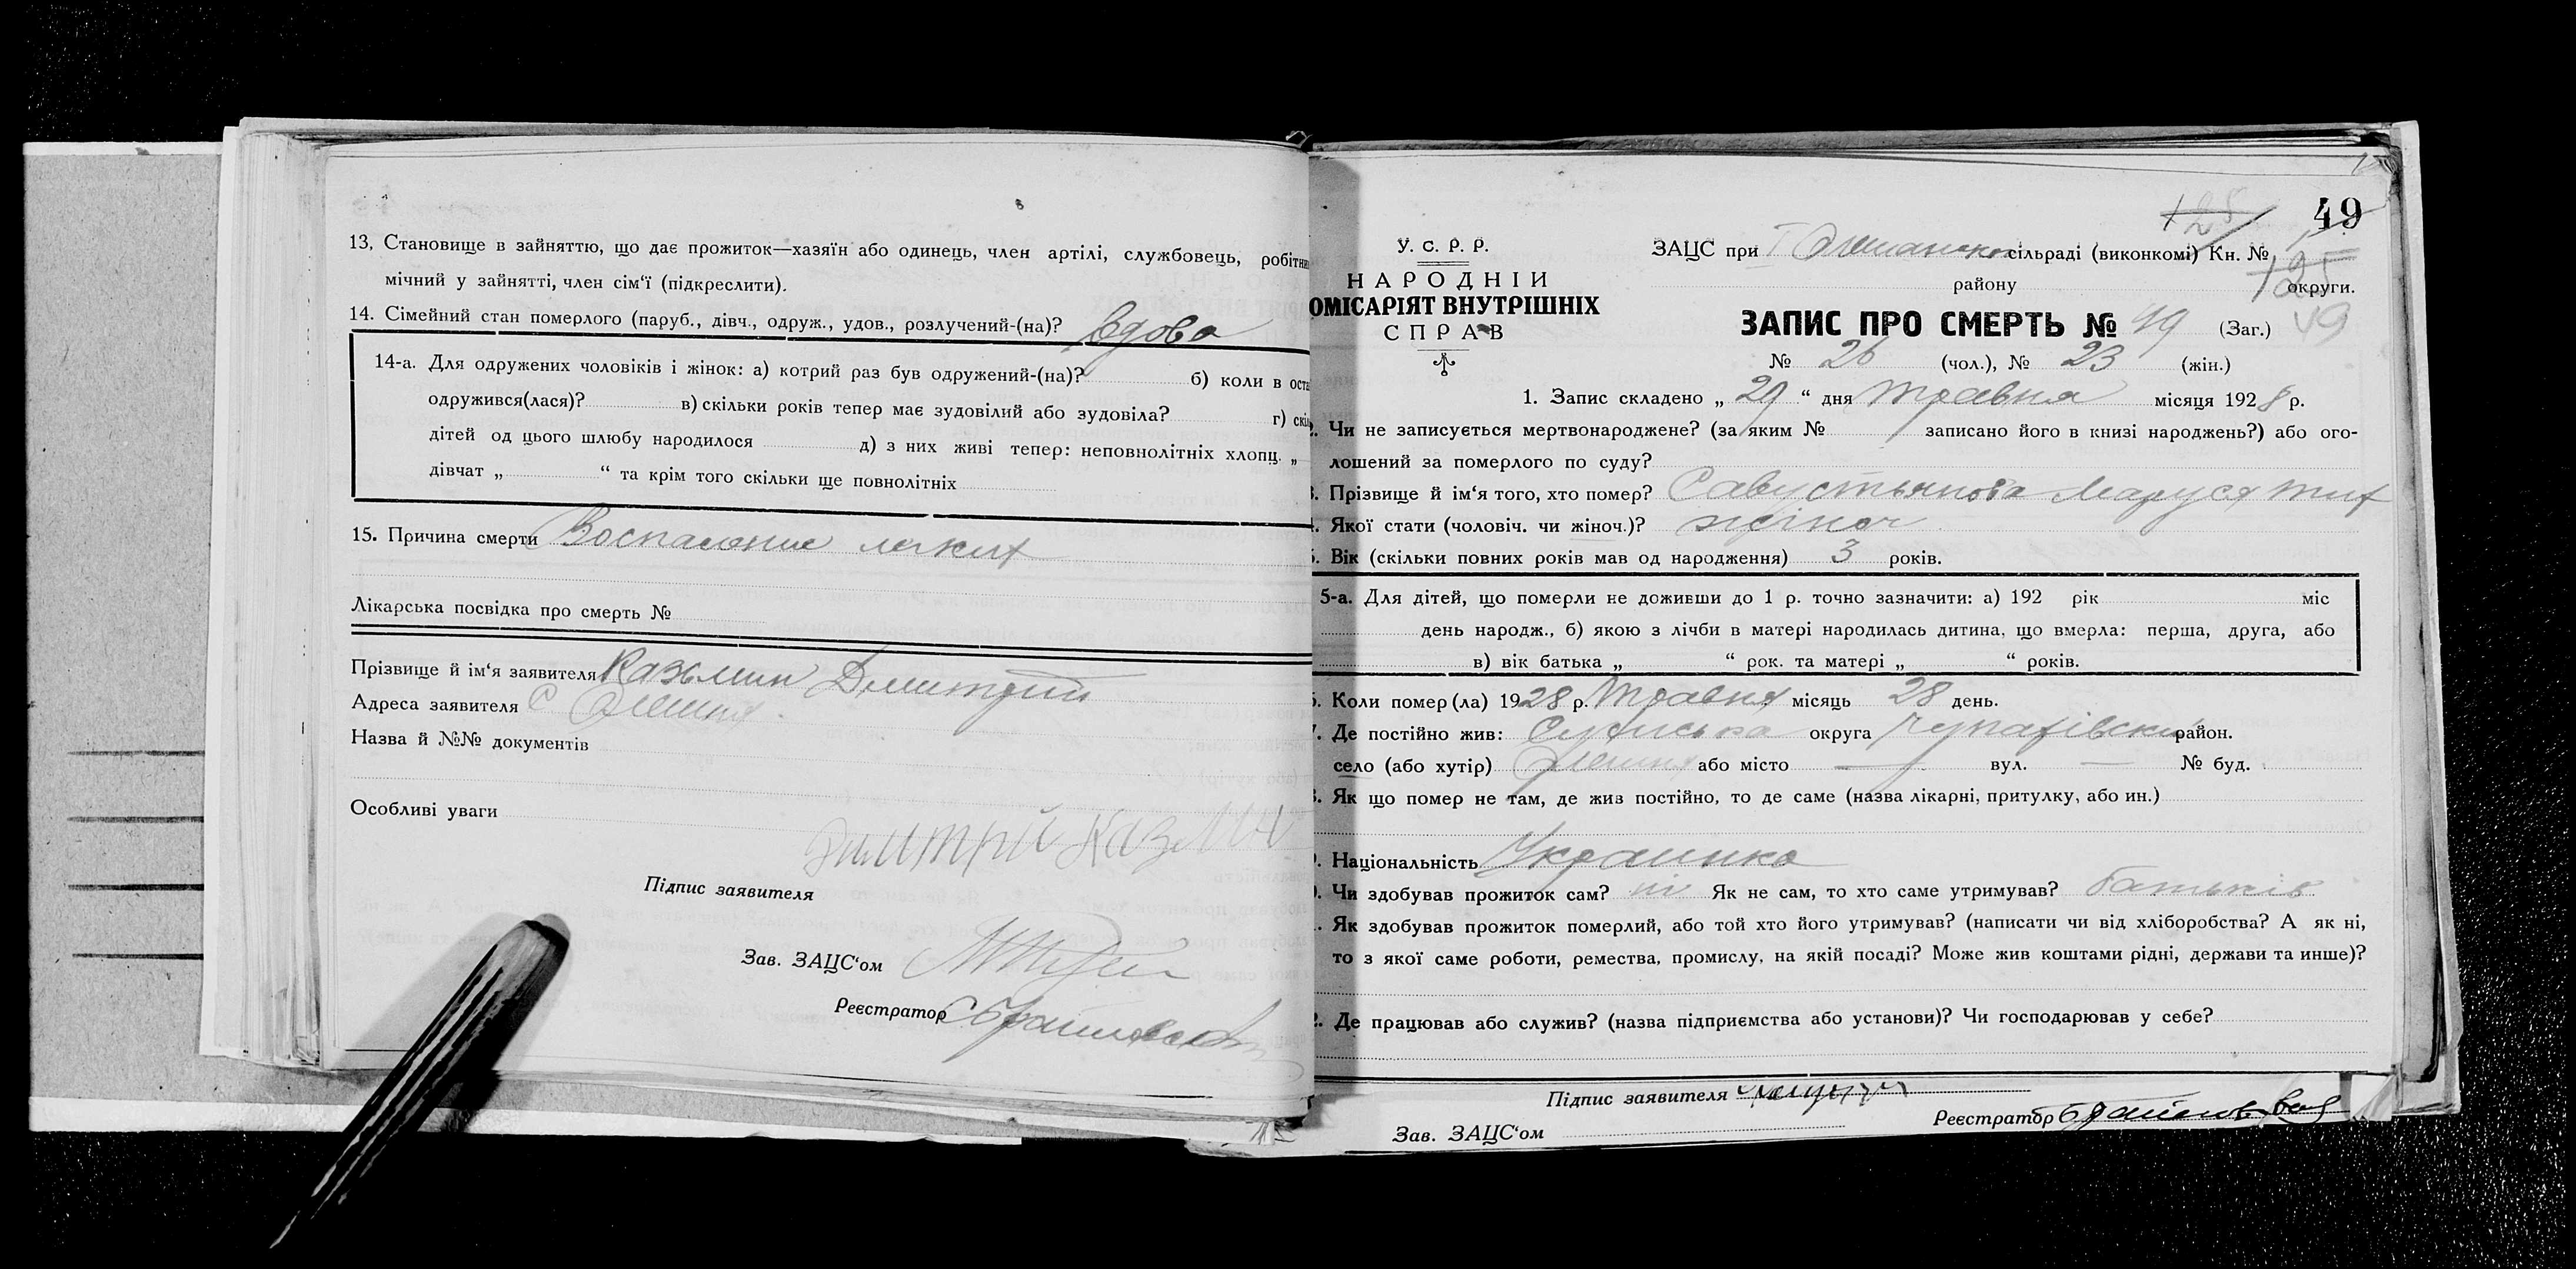 13, Становище в зайняттю, що дає прожиток—хазяїн або одинець, член артілі, службовець, робітни
мічний у зайнятті, член сім‘ї (підкреслити).
14. Сімейний стан померлого (паруб., дівч., одруж., удов., розлучений-(на)? вдова
14-а. Для одружених чоловіків і жінок: а) котрий раз був одружений-(на)? б) коли в оста
одружився(лася)? в) скільки років тепер має зудовілий або зудовіла? г) скіл
дітей од цього шлюбу народилося д) з них живі тепер: неповнолітніх хлопц. „
дівчат „ “ та крім того скільки ще повнолітніх
15. Причина смерти Воспаление легких
Лікарська посвідка про смерть №
Прізвище й ім‘я заявителя Казьмин Дмитрий
Адреса заявителя с
Назва й №№ документів
Особливі уваги
Дмитрий Казмин
Підпис заявителя
Зав. ЗАЦС‘ом
Реєстратор
49
125
У. С. Р. Р.
НАРОДНІЙ
ОМІСАРІЯТ ВНУТРІШНІХ
СПРАВ
ЗАЦС при сільраді (виконкомі) Кн. №
району округи.
ЗАПИС ПРО СМЕРТЬ № 49 (Заг.) 49
№ 26 (чол.), № 23 (жін.)
1. Запис складено „ 29 “ дня травня місяця 1928 р.
2. Чи не записується мертвонароджене? (за яким № записано його в книзі народжень?) або ого-
лошений за померлого по суду?
3. Прізвище й ім‘я того, хто помер? Савустьянова Маруся Тих
4. Якої стати (чоловіч. чи жіноч.)? жіноч
5. Вік (скільки повних років мав од народження) 3 років.
5-а. Для дітей, що померли не доживши до 1 р. точно зазначити: а) 192 рік міс
день народж., б) якою з лічби в матері народилась дитина, що вмерла: перша, друга, або
в) вік батька „ “ рок. та матері „ “ років.
6. Коли помер (ла) 1928 р. травня місяць 28 день.
7. Де постійно жив: Сумська округа район.
село (або хутір) або місто — вул. — № буд.
8. Як що помер не там, де жив постійно, то де саме (назва лікарні, притулку, або ин.)
9. Національність Украинка
0. Чи здобував прожиток сам? ні Як не сам, то хто саме утримував? батьків
. Як здобував прожиток померлий, або той хто його утримував? (написати чи від хліборобства? А як ні,
то з якої саме роботи, ремества, промислу, на якій посаді? Може жив коштами рідні, держави та инше)?
2. Де працював або служив? (назва підприємства або установи)? Чи господарював у себе?
Підпис заявителя
Реєстратор
Зав. ЗАЦС‘ом